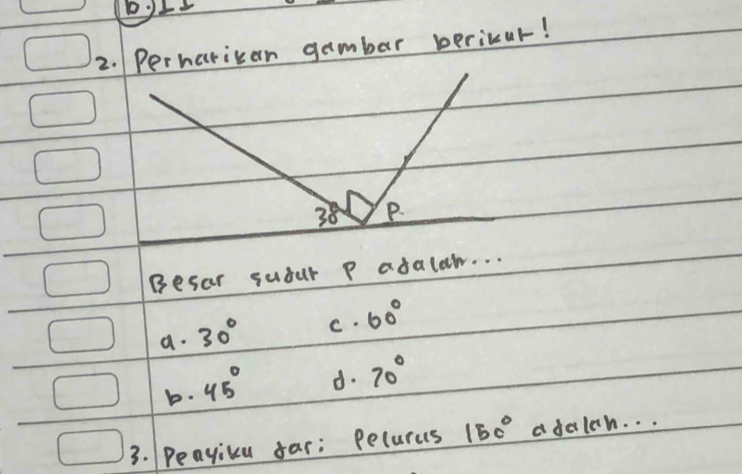 b. II
2. Perhatikan gambar berikut!
30° P
Besar sudut P adalah...
a. 30° c. 60°
b. 45° d. 70°
3. Penyiku dari pelurus 150° adalah...